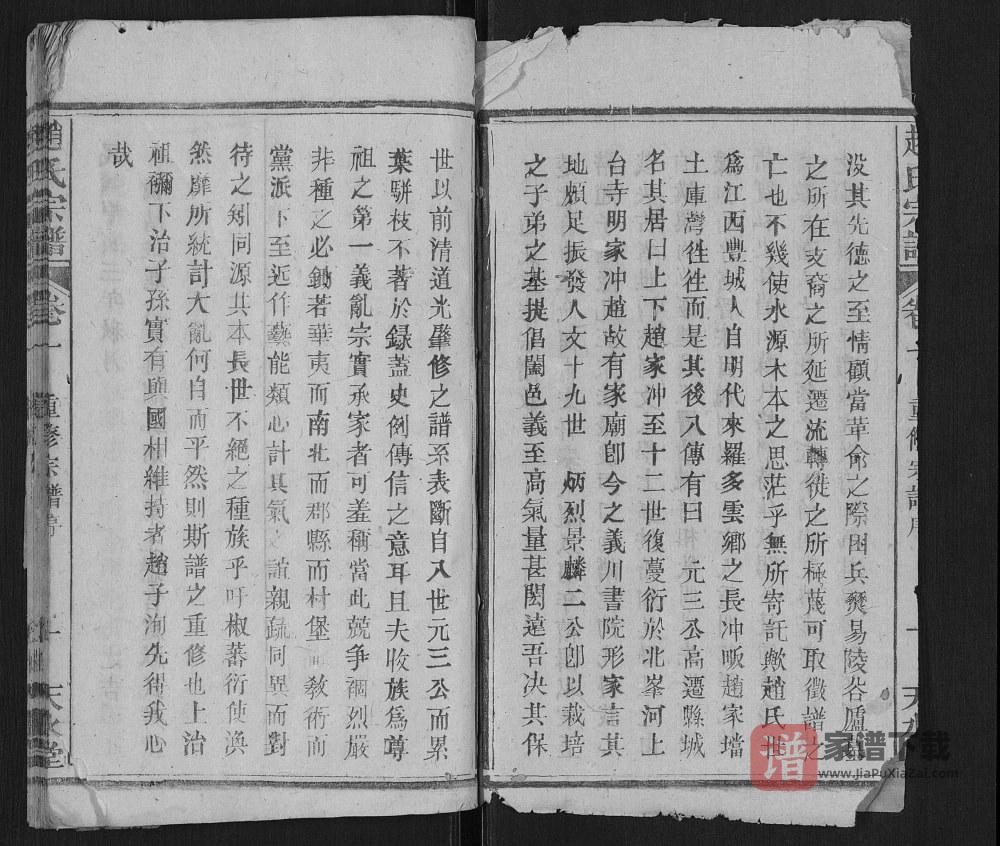 趙氏宗譜
卷一
重修宗譜序
天水堂
没其先德之至情顧當革命之際困兵燹易陵谷廬墓
之所在支裔之所延遷流轉徙之所極蔑可取徵譜之
亡也不幾使水源木本之思茫乎無所寄託歟趙氏世
爲江西豐城人自明代來羅多雲鄉之長冲畈趙家壋
土庫灣往往而是其後八傳有曰 元三公高遷縣城
名其居曰上下趙家冲至十二世復蔓衍於北峯河上
台寺明家冲趙故有家廟卽今之義川書院形家言其
地頗足振發人文十九世 炳烈景麟二公卽以栽培
之子弟之基提倡闔邑義至高氣量甚閎遠吾决其保
世以前清道光肇修之譜系表斷自入世元三公而累
葉駢枝不著於録葢史例傳信之意耳且夫收族爲尊
祖之第一義亂宗實承家者可羞稱當此競争禍烈嚴
非種之必鋤若華夷而南北而郡縣而村堡 教術而
黨派下至近作藝能類心計其氣 誼親疏同異而對
待之矧同源其本長世不絕之種族乎吁椒蕃衍使渙
然靡所統計大亂何自而平然則斯譜之重修也上治
祖禰下治子孫實有與國相維持者趙子洵先得我心
哉
趙氏宗譜
卷一
重修宗譜序
天水堂
譜 家谱下载
www.JiaPuXiaZai.com